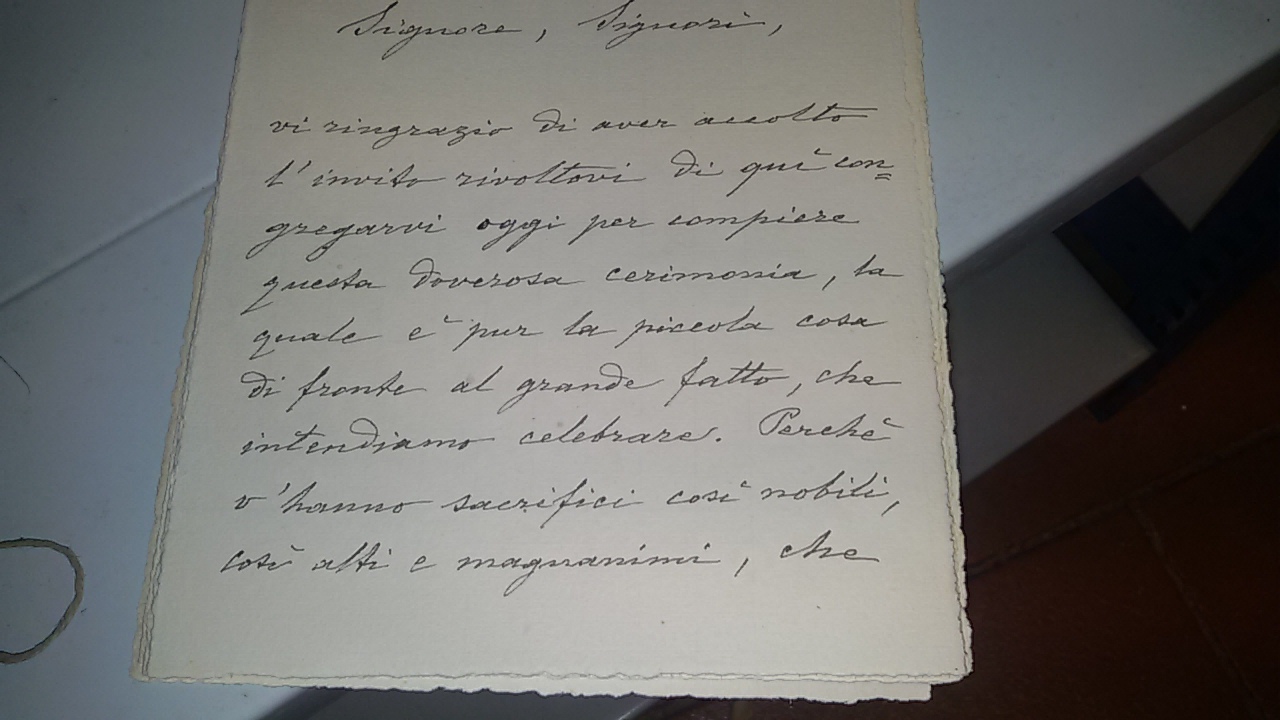 Signore, Signori,
vi ringrazio di aver accolto
l'invito rivoltovi di quì con=
gregarvi oggi per compiere
questa doverosa cerimonia, la
quale è pur la piccola cosa
di fronte al grande fatto, che
intendiamo celebrare. Perchè
v'hanno sacrifici così nobili,
così alti e magnanimi, che